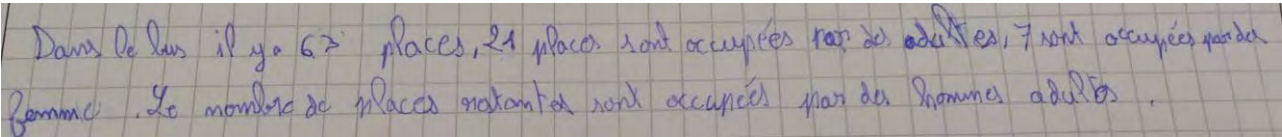 Dans le bus il y a 67 places, 21 places sont occupées par des adultes, 7 sont occupées par des
femme. Le nombre de places restantes sont occupés par des hommes adultes.